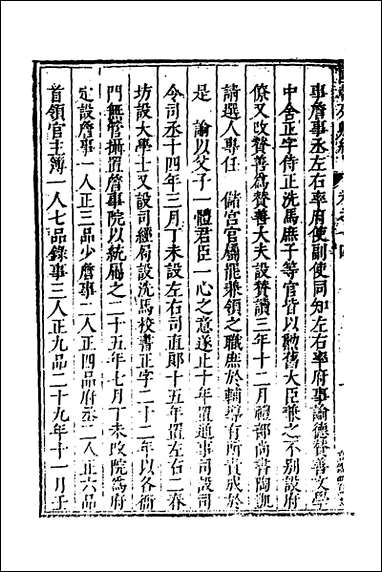 事詹事丞左右率府使副使同知左右率府事諭德贊善文學
中舍正字侍正洗馬庶子等官皆以勲舊大臣兼之不别設府
僚又改贊善爲贊善大夫設贊讀三年十二月禮部尚書陶凱
請選人專任　儲宮官屬罷兼領之職庶於輔導有所責成於
是　諭以父子一體君臣一心之意遂止十年置通事司設司
令司丞十四年三月丁未設左右司直郎十五年置左右二春
坊設大學士又設司經局設洗馬校書正字二十二年以各衙
門無管攝置詹事院以統屬之二十五年七月丁未改院爲府
定設詹事一人正三品少詹事二人正四品府丞二人正六品
首領官主簿一人七品錄事三人正九品二十九年十一月于